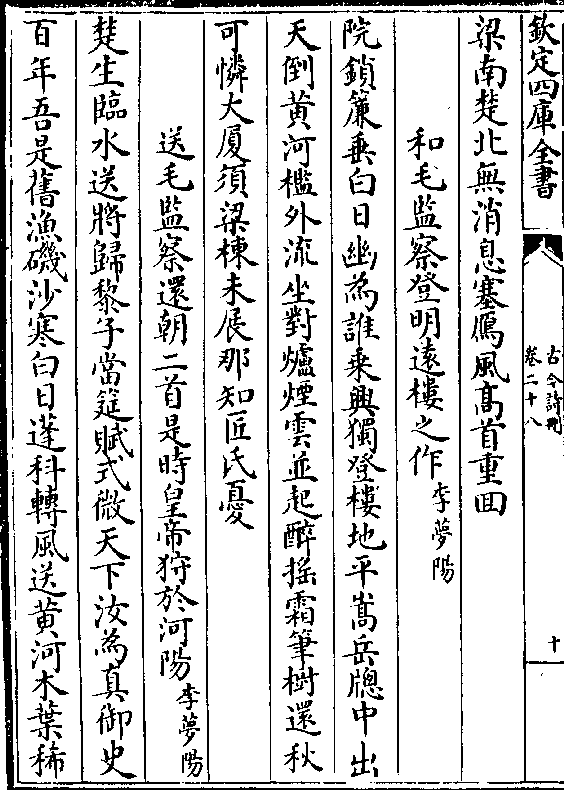 欽定四庫全書
古今詩刪
卷二十八
十
梁南楚北無消息塞鴈風髙首重回
和毛監察登明遠樓之作李夢陽
院鎖簾垂白日幽為誰乘興獨登樓地平嵩岳牕中出
天倒黄河檻外流坐對爐煙雲並起醉摇霜筆樹還秋
可憐大厦須梁棟未展那知匠氏憂
送毛監察還朝二首是時皇帝狩於河陽李夢陽
楚生臨水送將歸黎子當筵賦式微天下汝為真御史
百年吾是舊漁磯沙寒白日蓬科轉風送黄河木葉稀